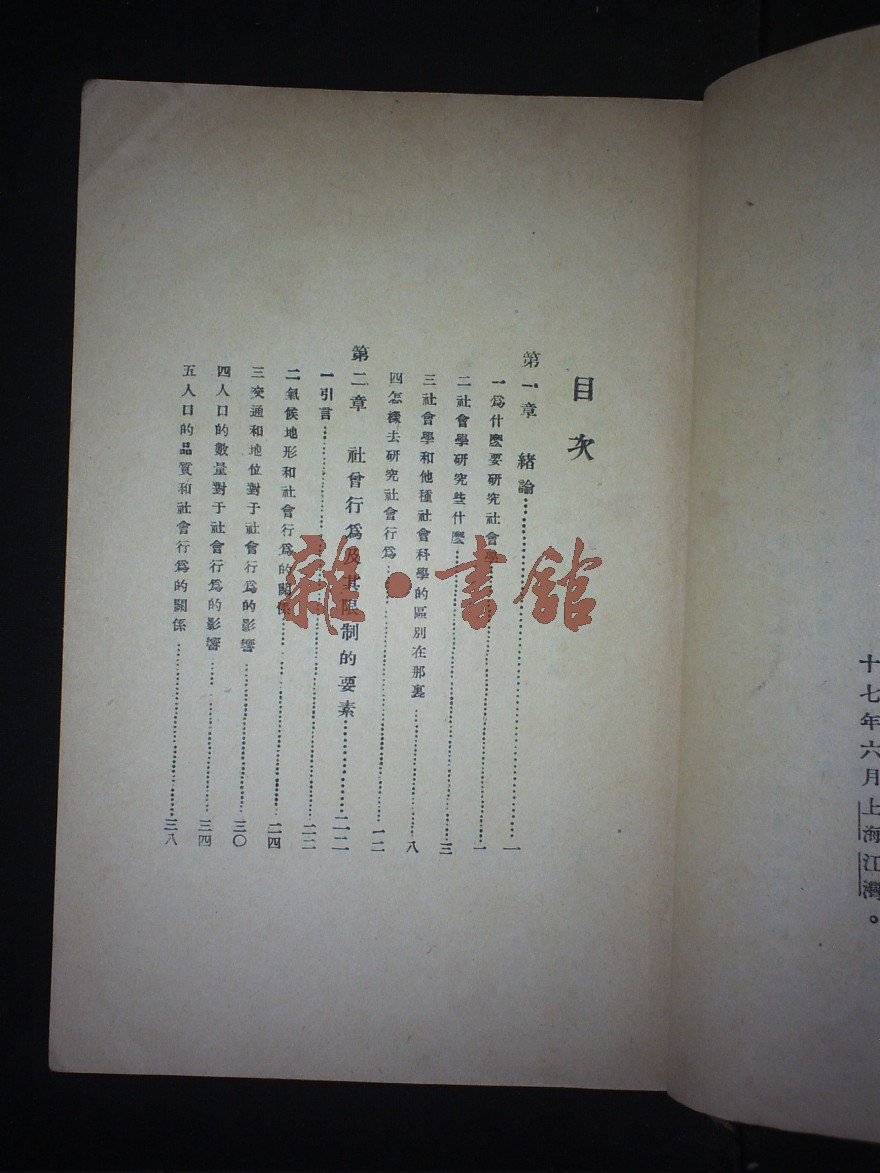 十七年六月上海江灣。
目次
第一章 緒論……一
一 爲什麼要研究社會學……一
二 社會學研究些什麼……三
三 社會學和他種社會科學的區別在那裏……八
四 怎樣去研究社會行爲……一二
第二章 社會行爲及其限制的要素……二二
一 引言……二二
二 氣候地形和社會行爲的關係……二四
三 交通和地位對于社會行爲的影響……三〇
四 人口的數量對于社會行爲的影響……三四
五 人口的品質和社會行爲的關係……三八
雜·書館